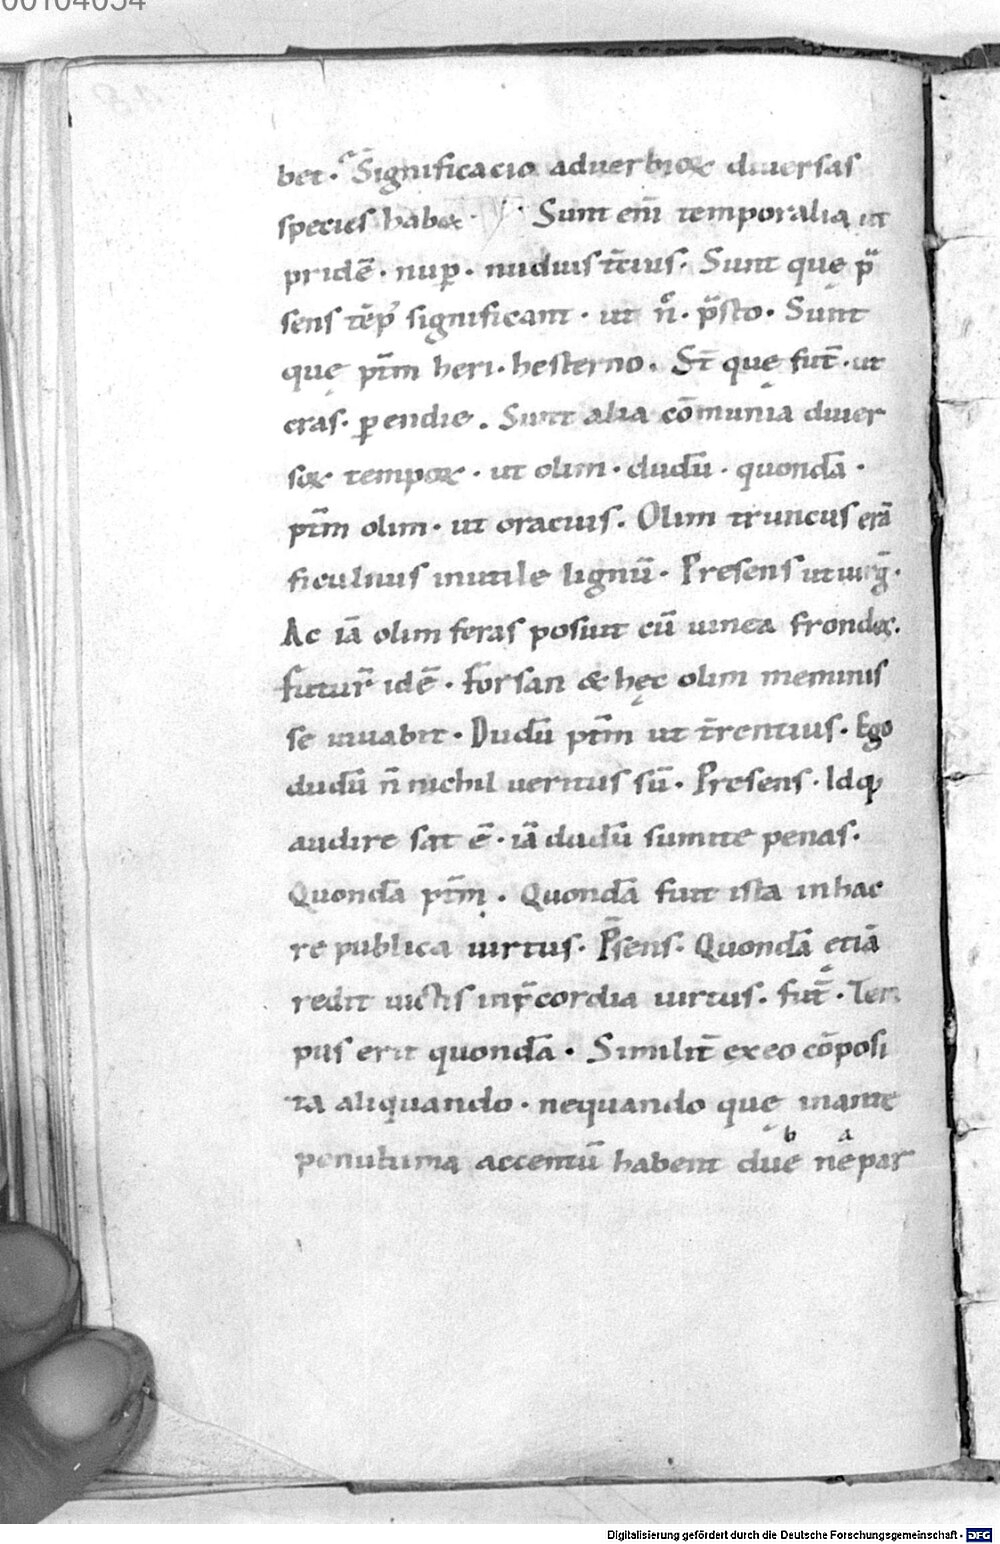 00104054
bet. Significacio aduerbioꝝ diuersas
species habet. Sunt eni̅ temporalia ut
pride̅. nuꝑ. nudius tc̅ius. Sunt quę p̅
sens te̅p᷒ significant. ut n̅c. p̅sto. Sunt
quę pt̅m heri. hesterno. St̅ quę fut̅. ut
cras. ꝑendie. Sunt alia co̅munia diuer
soꝝ tempoꝝ. ut olim. dudu̅. quonda̅.
pt̅m olim. ut oracius. Olim truncus era̅
ficulnus inutile lignu̅. Presens ut uirg̅.
Ac ia̅ olim seras posuit cu̅ uinea frondes.
futur̅ ide̅. Forsan & hęc olim meminis
se iuuabit. Dudu̅ pt̅m ut t̅rentius. Ego
dudu̅ n̅ nichil ueritus su̅. Presens. Idꝙ
audire sat e̅. ia̅ dudu̅ sumite penas.
Quonda̅ pt̅m. Quonda̅ fuit ista in hac
re publica uirtus. P̅sens. Quonda̅ etia̅
redit uictis in p̅cordia uirtus. fut̅. Tem
pus erit quonda̅. Similit̅ ex eo co̅posi
ta aliquando. nequando quę in ante
penultima accentu̅ habent duę ne par
Digitalisierung gefördert durch die Deutsche Forschungsgemeinschaft - DFG